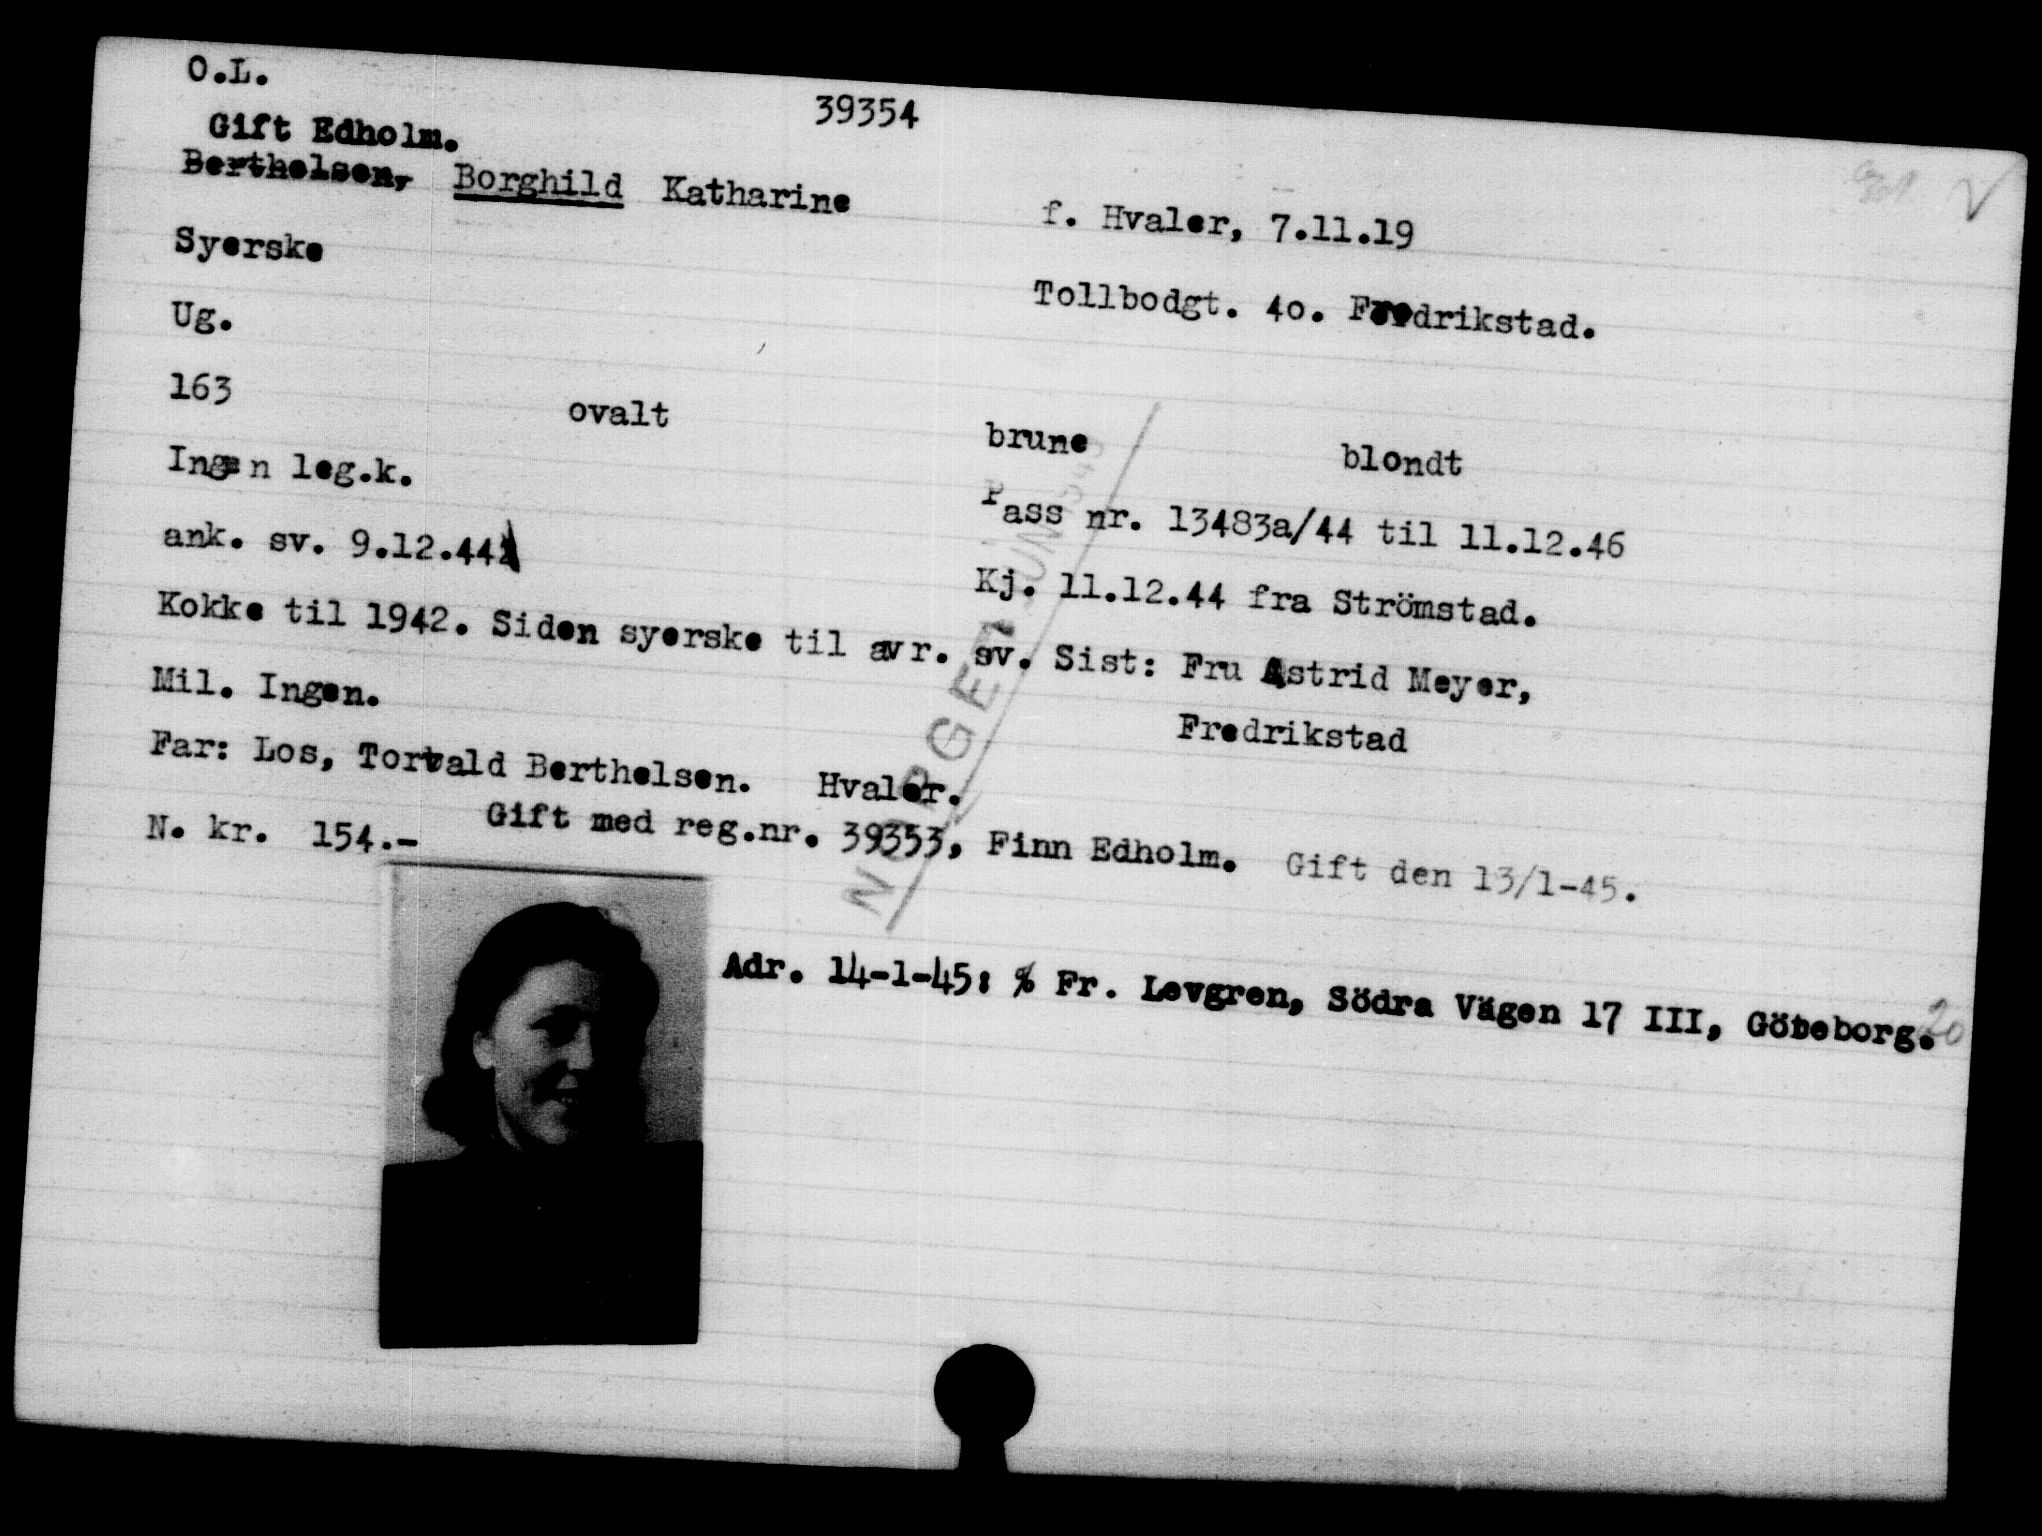 O.L.
39354
Gift Edholm.
Berthelsen, Borghild Katharine
f. Hvaler, 7.11.19
Syerske
Tollbodgt. 4o. Fredrikstad.
Ug.
163 ovalt brune blondt
Ingen leg.k.
Pass nr. 13483a/44 til 11.12.46
ank. sv. 9.12.44
Kj. 11.12.44 fra Strömstad.
Kokke til 1942. Siden syerske til avr. sv. Sist: Fru Astrid Meyer,
Fredrikstad
Mil. Ingen.
Far: Los, Torvald Berthelsen. Hvaler.
N. kr. 154.- Gift med reg.nr. 39353, Finn Edholm. Gift den 13/1-45.
NORGE
Adr. 14-1-45: % Fr. Levgren, Södra Vägen 17 III, Göteborg.
20